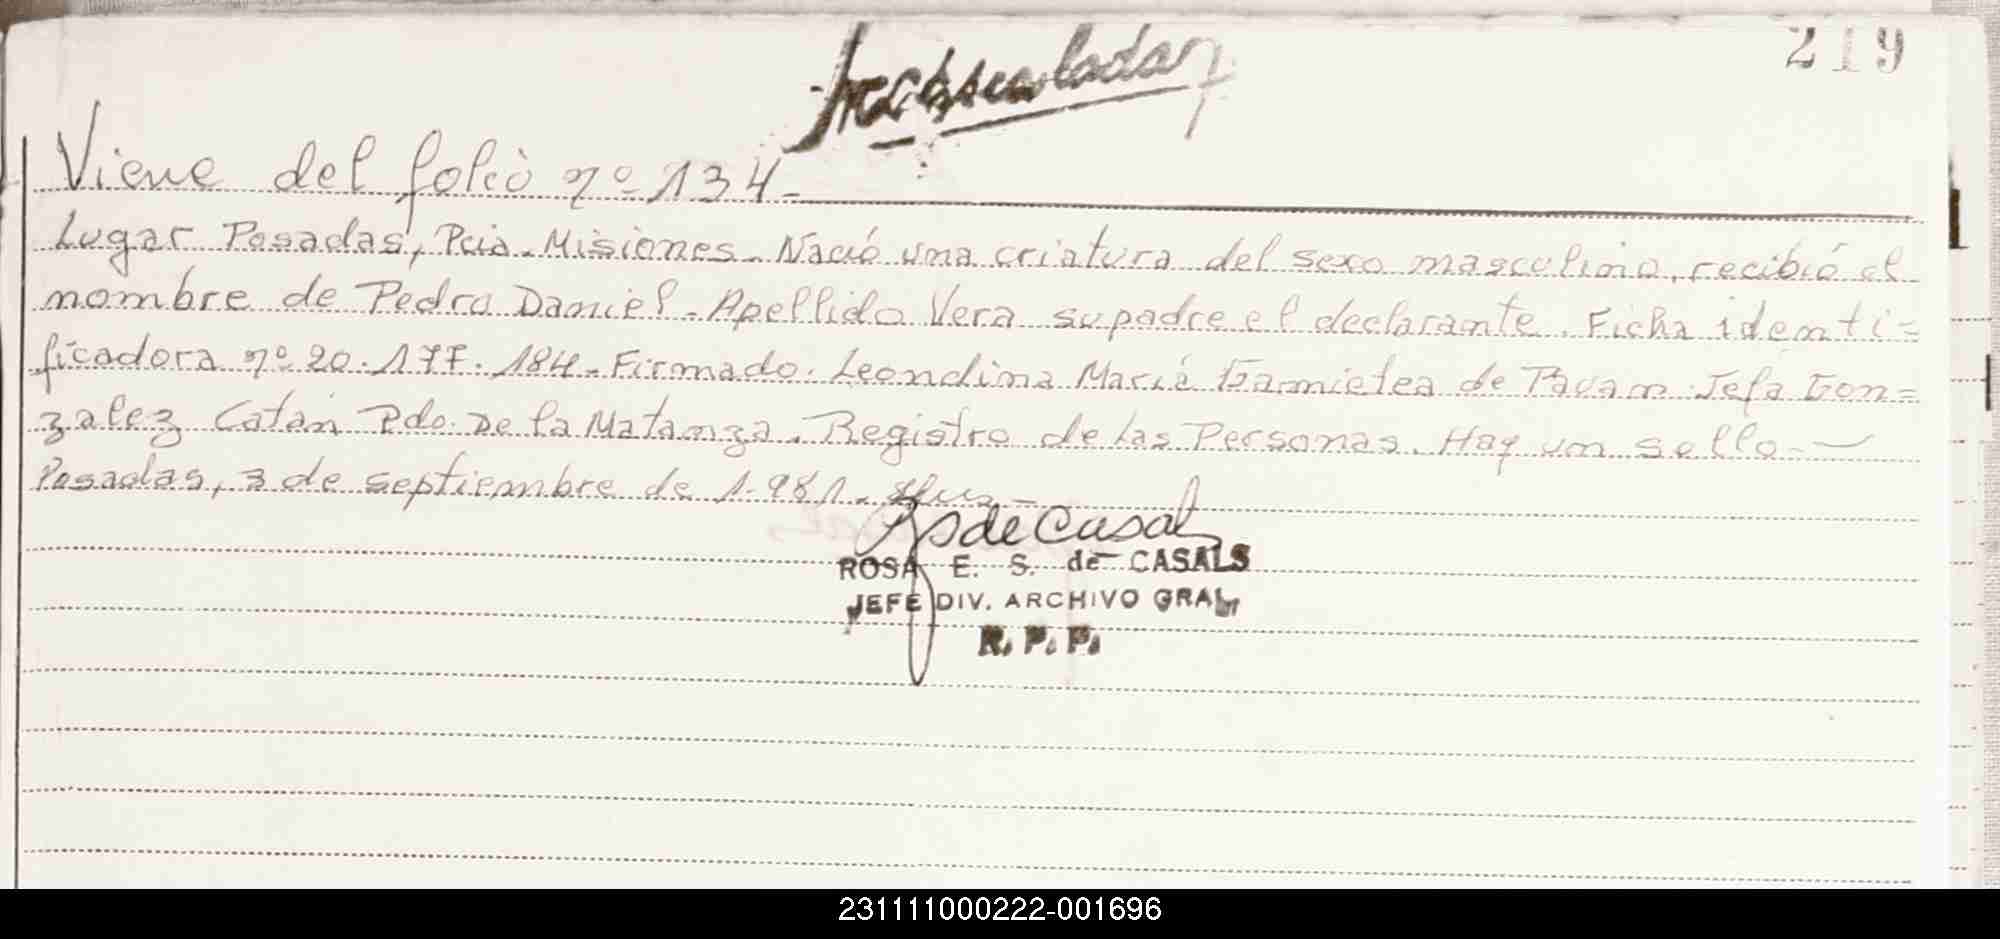 219
Viene del folio nº 134-
Lugar Posadas, Pcia. Misiones. Nació una criatura del sexo masculino, recibió el
nombre de Pedro Daniel. Apellido Vera su padre el declarante. Ficha identi=
ficadora nº 20.177.184. Firmado. Leondina María de Jefa Gon=
zalez Catán Pdo. De la Matanza. Registro de las Personas. Hay un sello.-
Posadas, 3 de septiembre de 1.981.
ROSA E. S. de CASALS
JEFE DIV. ARCHIVO GRAL.
R. P. P.
231111000222-001696